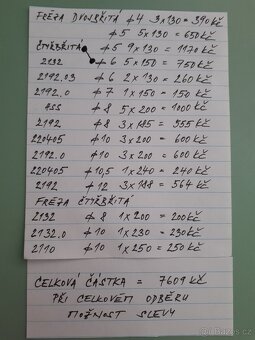 FRÉZA DVOJBŘITÁ ϕ4 3x130 = 390 Kč
ϕ5 5x130 = 650 Kč
ČTYŘBŘITÁ ϕ5 9x130 = 1170 Kč
2132 ϕ6 5x150 = 750 Kč
2192.03 ϕ6 2x130 = 260 Kč
2192.0 ϕ7 1x150 = 150 Kč
HSS ϕ8 5x200 = 1000 Kč
2192 ϕ8 3x185 = 555 Kč
220405 ϕ10 3x200 = 600 Kč
2192.0 ϕ10 3x200 = 600 Kč
220405 ϕ10,5 1x240 = 240 Kč
2192 ϕ12 3x188 = 564 Kč
FRÉZA ČTYŘBŘITÁ
2132 ϕ8 1x200 = 200 Kč
2132.0 ϕ10 1x230 = 230 Kč
2110 ϕ10 1x250 = 250 Kč
CELKOVÁ ČÁSTKA = 7609 Kč
PŘI CELKOVÉM ODBĚRU
MOŽNOST SLEVY